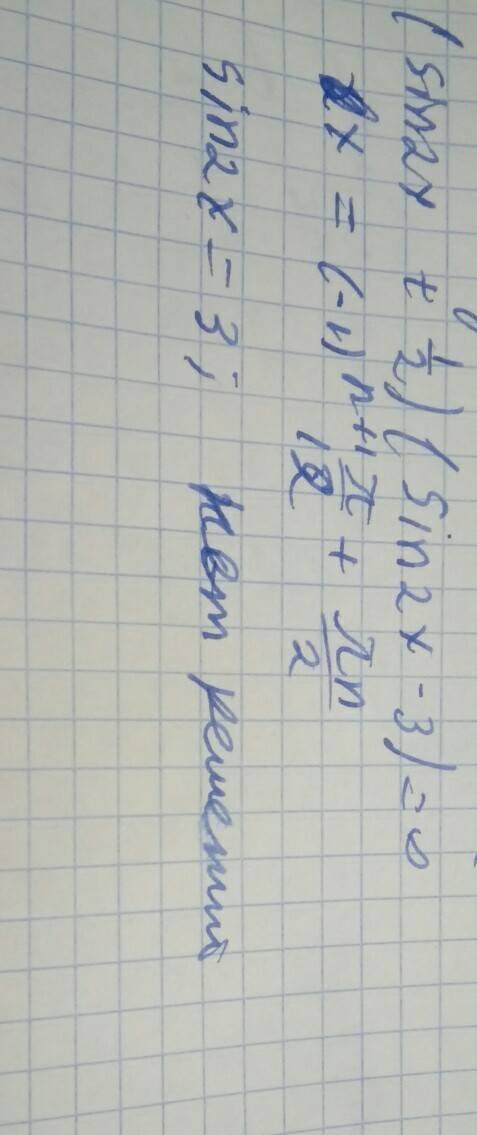 (sin2x + 1/2)(sin2x - 3) = 0
x = (-1)^{n+1} π/12 + πn/2
sin2x = 3; нет решений